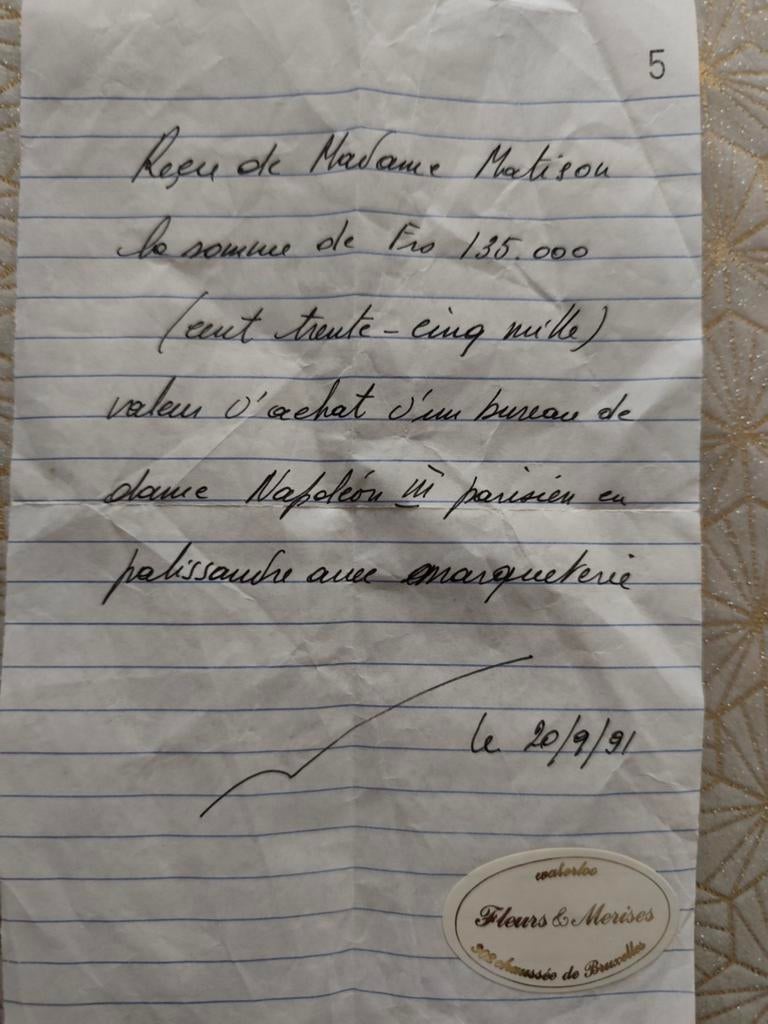 5
Reçu de Madame Matison
la somme de Frs 135.000
(cent trente-cinq mille)
valeur d'achat d'un bureau de
dame Napoléon III parisien en
palissandre avec marqueterie
le 20/9/91
waterloo
Fleurs & Merises
302 chaussée de Bruxelles